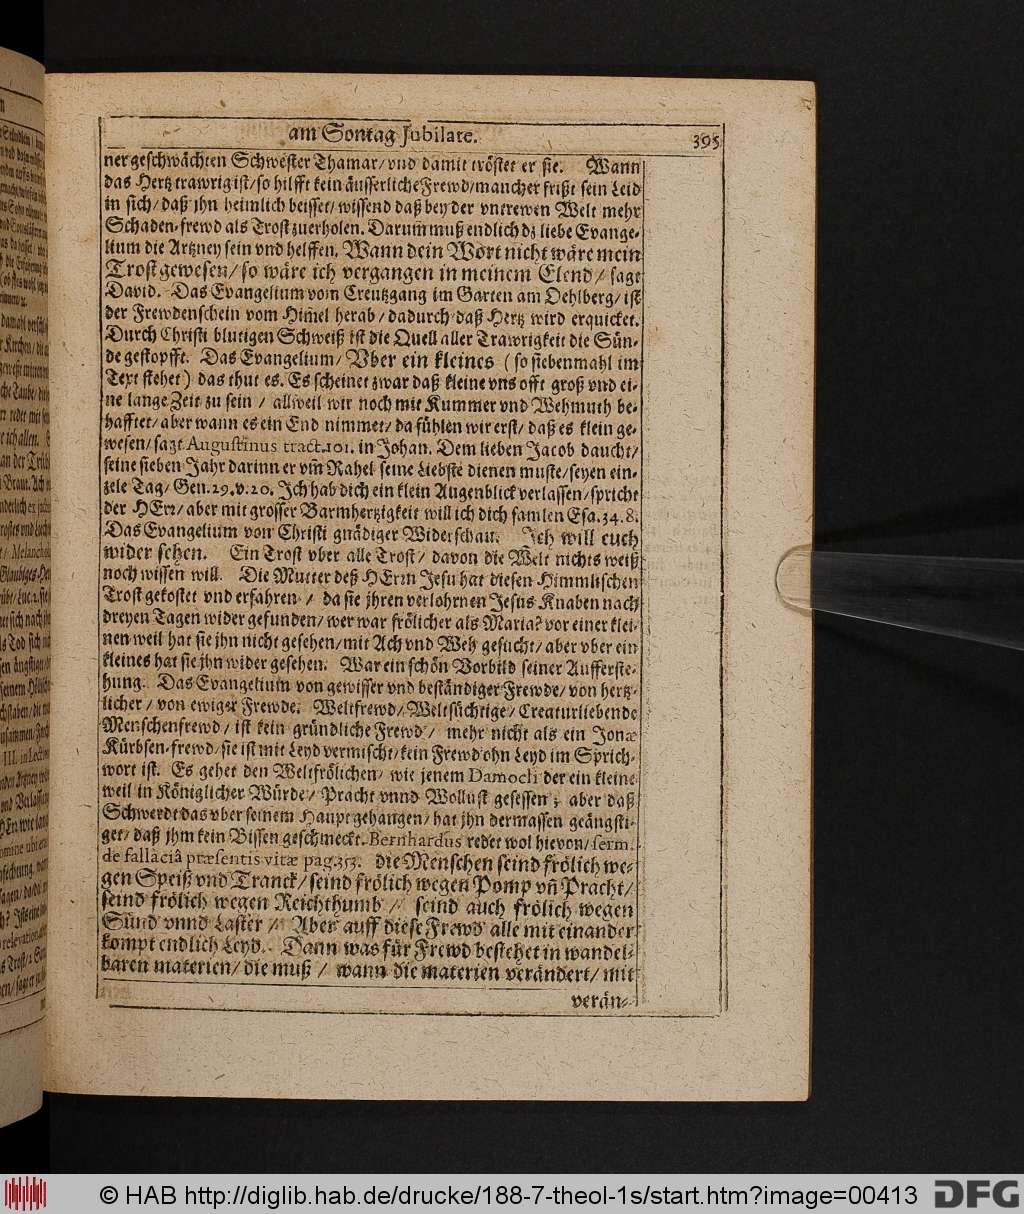 am Sontag Jubilare. 395
ner geschwächten Schwester Thamar/ vnd damit tröstet er sie. Wann
das Hertz trawrig ist/ so hilfft kein äusserliche Frewd/ mancher frißt sein Leid
in sich/ daß jhn heimlich beisset/ wissend daß bey der vntrewen Welt mehr
Schaden-frewd als Trost zuerholen. Darum muß endlich dz liebe Evange-
lium die Artzney sein vnd helffen. Wann dein Wort nicht wäre mein
Trost gewesen/ so wäre ich vergangen in meinem Elend/ sagt
David. Das Evangelium vom Creutzgang im Garten am Oehlberg/ ist
der Frewdenschein vom Him̃el herab/ dadurch daß Hertz wird erquicket.
Durch Christi blutigen Schweiß ist die Quell aller Trawrigkeit die Sün-
de gestopfft. Das Evangelium/ Vber ein kleines (so siebenmahl im
Text stehet) das thut es. Es scheinet zwar daß kleine vns offt groß vnd ei-
ne lange Zeit zu sein/ allweil wir noch mit Kummer vnd Wehmuth be-
hafftet/ aber wann es ein End nimmet/ da fühlen wir erst/ daß es klein ge-
wesen/ sagt Augustinus tract. 101. in Johan. Dem lieben Jacob daucht/
seine sieben Jahr darinn er vm̃ Rahel seine Liebste dienen muste/ seyen ein-
zele Tag/ Gen. 29. v. 20. Ich hab dich ein klein Augenblick verlassen/ spricht
der HErr/ aber mit grosser Barmhertzigkeit will ich dich samlen Esa. 34. 8.
Das Evangelium von Christi gnädiger Widerschau. Ich will euch
wider sehen. Ein Trost vber alle Trost/ davon die Welt nichts weiß
noch wissen will. Die Mutter deß HErrn Jesu hat diesen Himmlischen
Trost gekostet vnd erfahren/ da sie jhren verlohrnen Jesus Knaben nach
dreyen Tagen wider gefunden/ wer war frölicher als Maria? vor einer klei-
nen weil hat sie jhn nicht gesehen/ mit Ach vnd Weh gesucht/ aber vber ein
kleines hat sie jhn wider gesehen. War ein schön Vorbild seiner Aufferste-
hung. Das Evangelium von gewisser vnd beständiger Frewde/ von hertz-
licher/ von ewiger Frewde. Weltfrewd/ Weltsüchtige/ Creaturliebende
Menschenfrewd/ ist kein gründliche Frewd/ mehr nicht als ein Jonæ
Kürbsen-frewd/ sie ist mit Leyd vermischt/ kein Frewd ohn Leyd im Sprich-
wort ist. Es gehet den Weltfrölichen/ wie jenem Damocli der ein kleine
weil in Königlicher Würde/ Pracht vnnd Wollust gesessen; aber daß
Schwerdt das vber seinem Haupt gehangen/ hat jhn dermassen geängsti-
get/ daß jhm kein Bissen geschmeckt. Bernhardus redet wol hievon/ serm.
de fallaciâ præsentis vitæ pag. 353. die Menschen seind frölich we-
gen Speiß vnd Tranck/ seind frölich wegen Pomp vñ Pracht/
seind frölich wegen Reichthumb/ seind auch frölich wegen
Sünd vnnd Laster/ Aber auff diese Frewd alle mit einander
kompt endlich Leyd. Dann was für Frewd bestehet in wandel-
baren materien/ die muß/ wann die materien verändert/ mit
verän-
© HAB http://diglib.hab.de/drucke/188-7-theol-1s/start.htm?image=00413 DFG